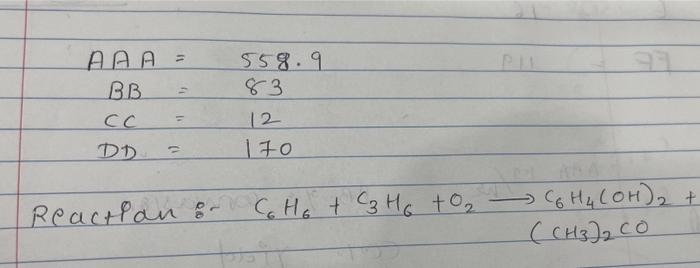 AAA = 558.9
BB = 83
CC = 12
DD = 170
Reaction :- C₆H₆ + C₃H₆ + O₂ → C₆H₄(OH)₂ +
(CH₃)₂CO